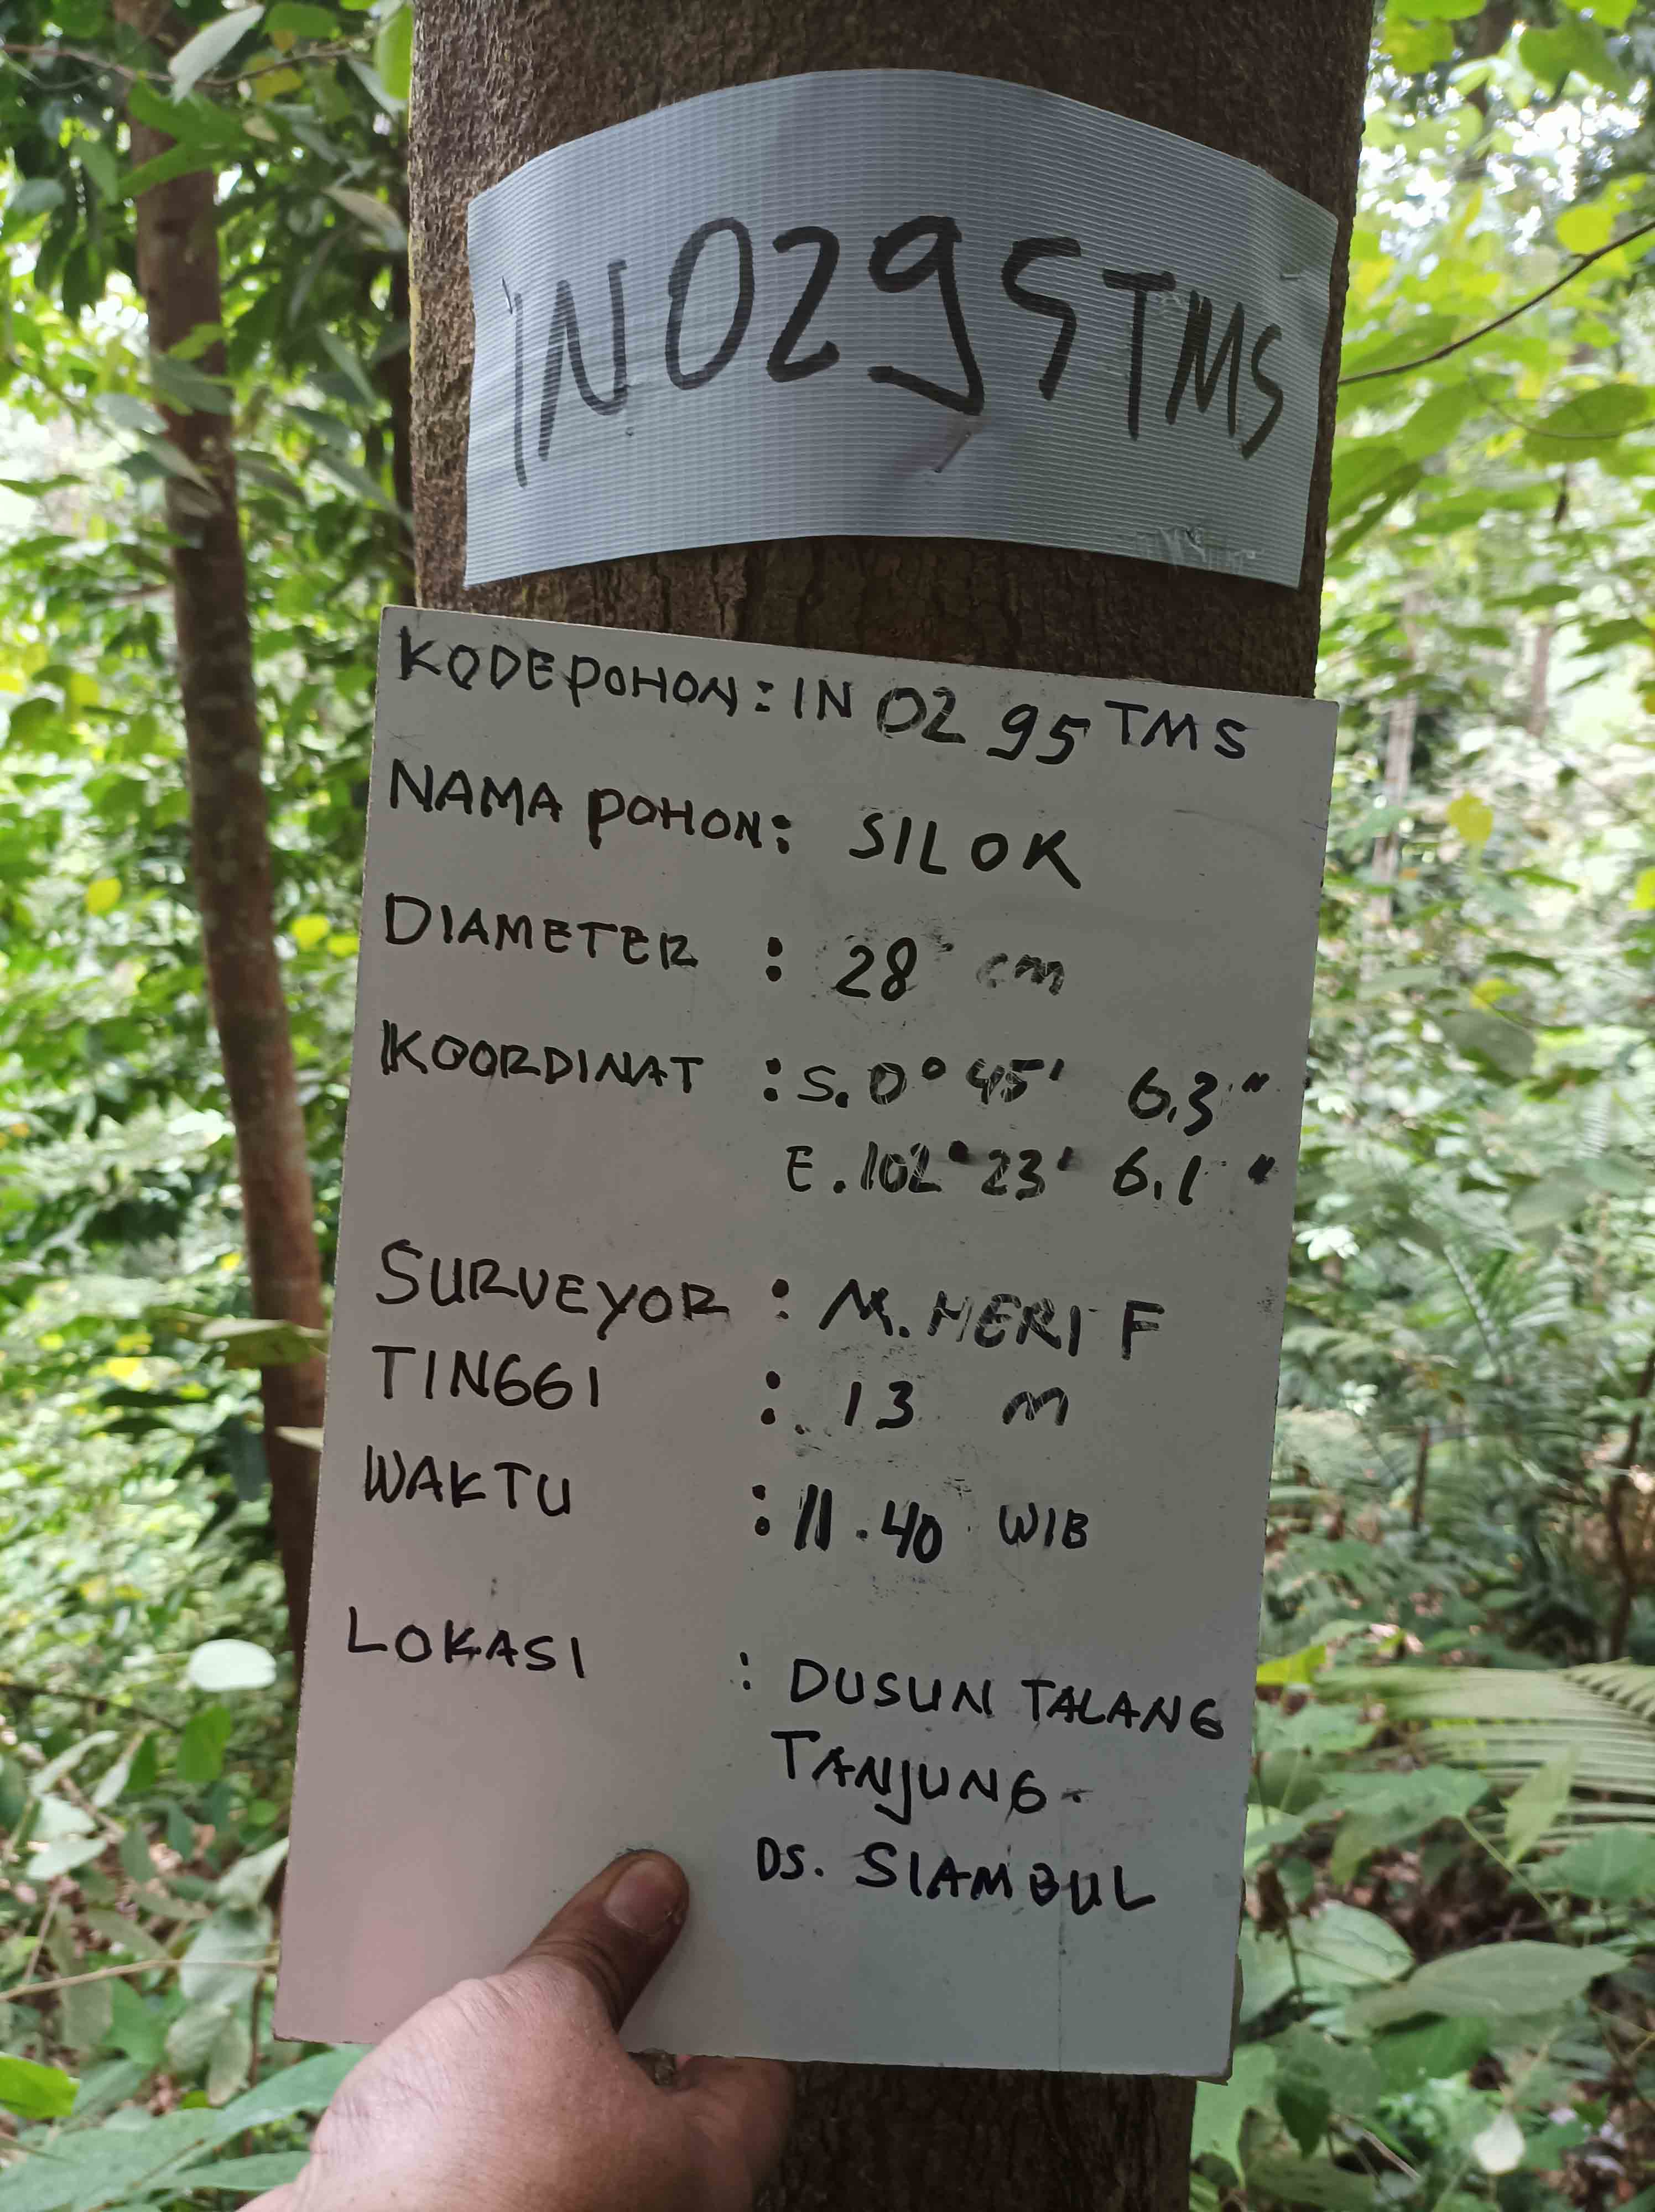 IN0295TMS
KODE POHON : IN 0295 TMS
NAMA POHON : SILOK
DIAMETER : 28 cm
KOORDINAT : S. 0° 45' 6.3"
E. 102° 23' 6.1"
SURVEYOR : M. HERI F
TINGGI : 13 m
WAKTU : 11.40 WIB
LOKASI : DUSUN TALANG
TANJUNG.
DS. SIAMBUL